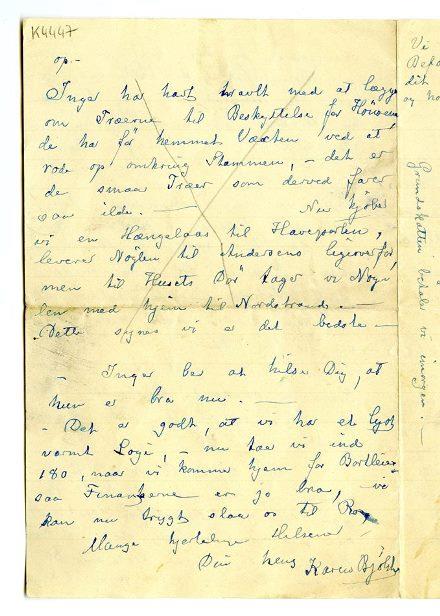 K4447
op.-
Inger har havt travlt med at lægge
om Træerne til Beskyttelse for Hønsene,
de har før hemmet Væxten ved at
rode op omkring Stammen, – det er
de smaa Træer som derved farer
saa ilde. — Nu kjøber
vi en Hængelaas til Haveporten,
leverer Nøglen til Andersens ligeoverfor,
men til Husets Dør tager vi Nøg-
len med hjem til Nordstrand. —
Dette synes vi er det bedste —
– Inger ber at hilse Dig, at
hun er bra nu. —
- Det er godt, at vi har et lyst
varmt Logi, – nu tar vi ind
180, naar vi komme hjem for
saa Finanserne er jo bra, vi
kan nu trygt slaa os til Ro,
Mange hjertelige Hilsener
Din hens Karen
Vi
dit
og
Grundskatten betale vi imorgen. —